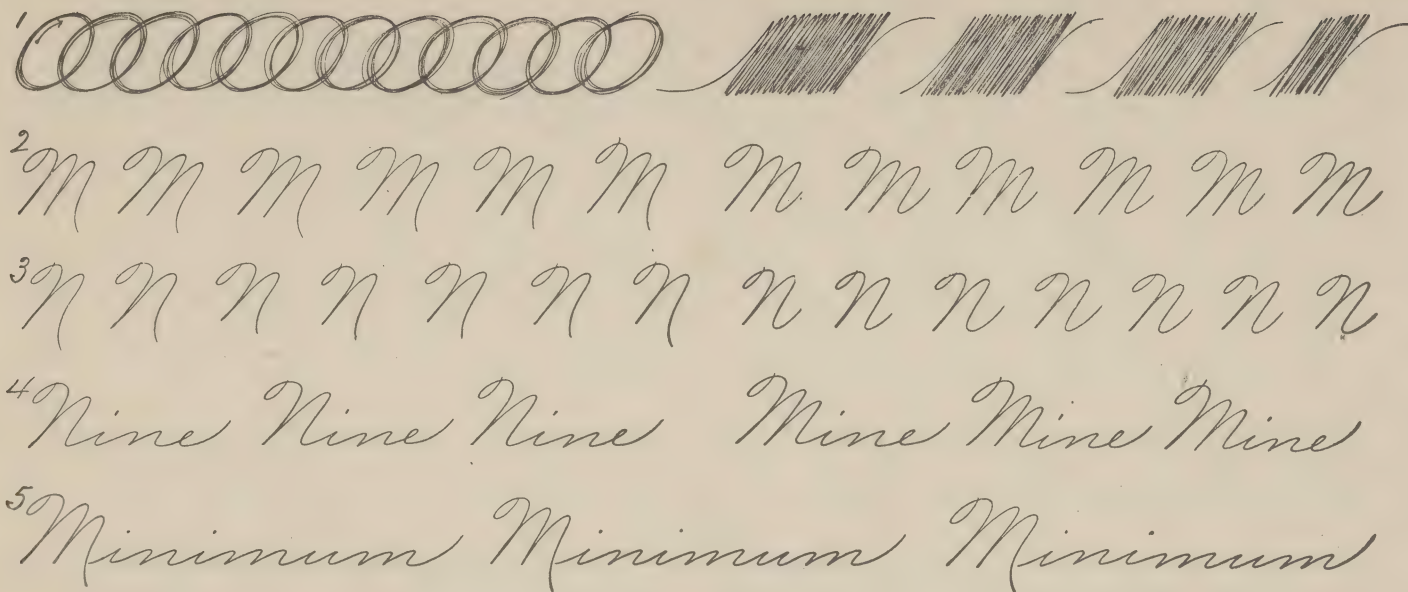 1
2 M M M M M M M M M M M M
3 N N N N N N N N N N N N N N
4 Nine Nine Nine Mine Mine Mine
5 Minimum Minimum Minimum